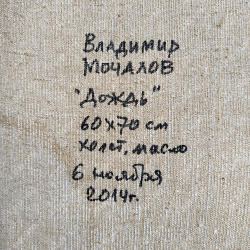 Владимир
Мочалов
"Дождь"
60х70 см
холст, масло
6 ноября
2014г.